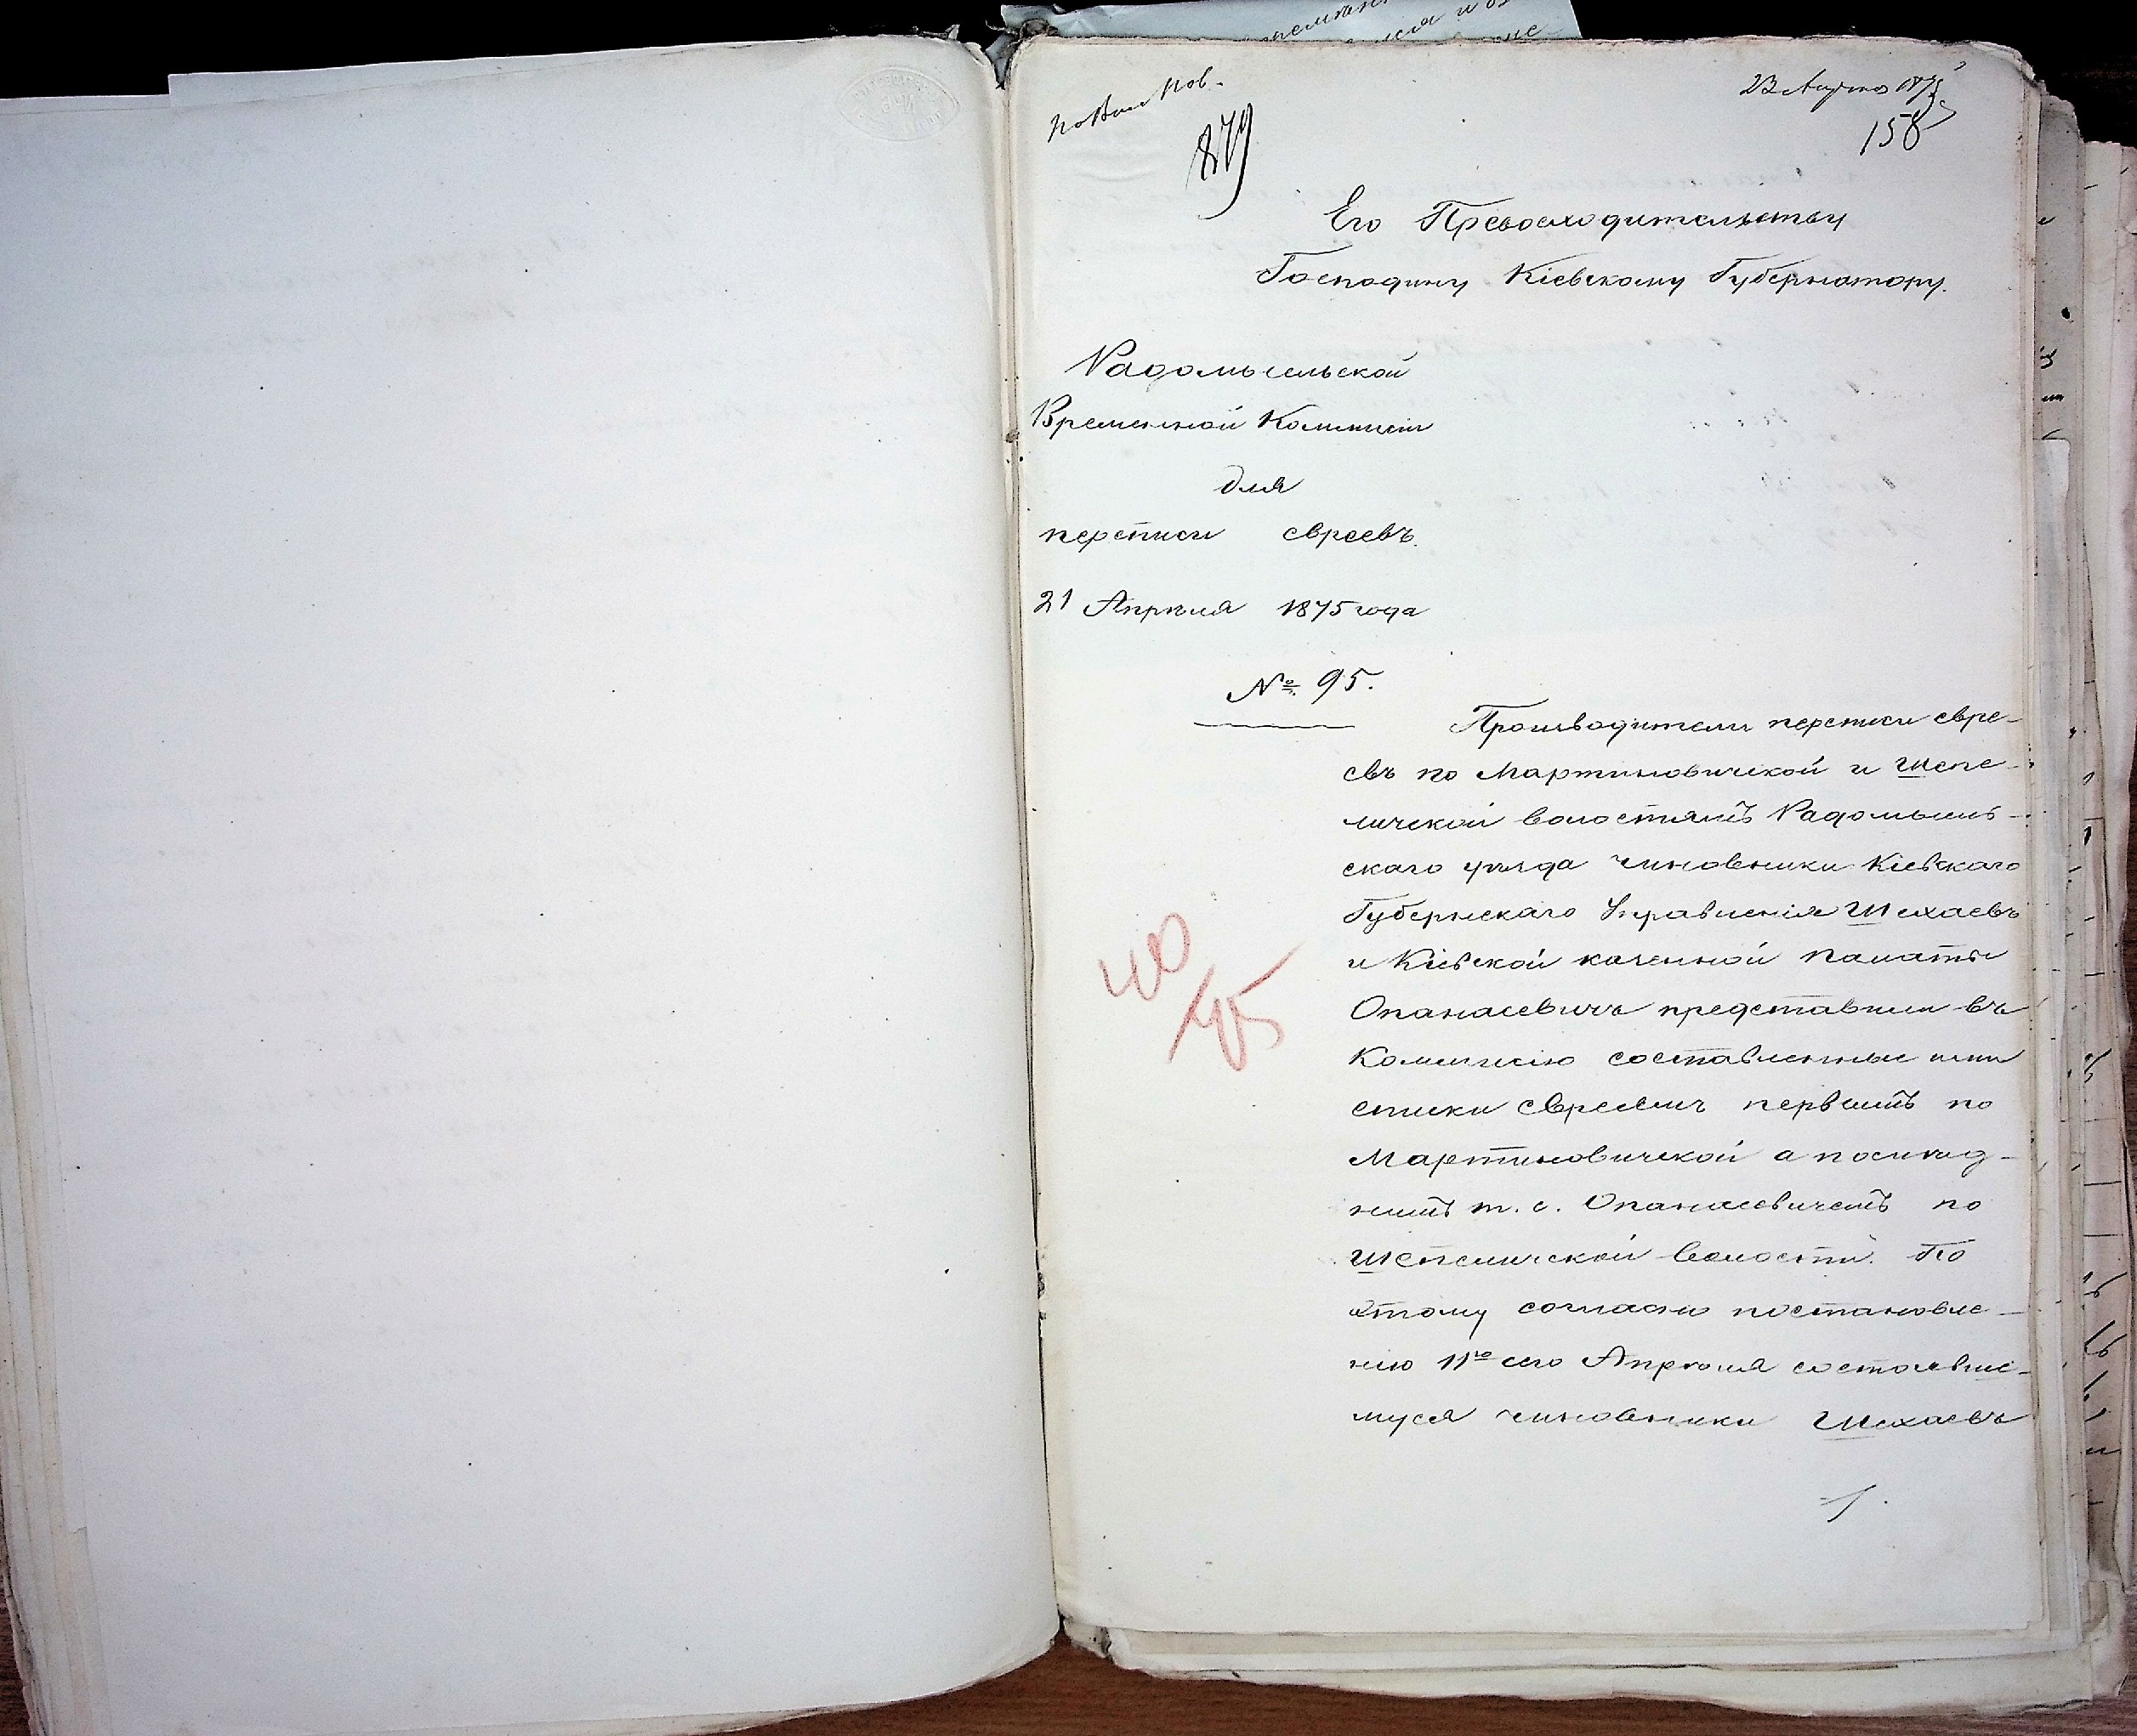 23 Апреля 1875
158
879
Его Превосходительству
Господину Кіевскому Губернатору.
Радомысльской
Временной Коммисіи
для
переписи евреевъ.
21 Апрѣля 1875 года
№ 95.
Производители переписи евре-
евъ по Мартиновичской и Шепе-
личской волостямъ Радомысль-
скаго уѣзда чиновники Кіевскаго
Губернскаго Управленія Шехаевъ
и Кіевской казенной палаты
Опанасевичъ представили въ
Коммисію составленные ими
списки евреевъ первымъ по
Мартиновичской а послѣд-
нимъ т. е. Опанасевичемъ по
Шепеличской волости. По
этому согласно постановле-
нію 11го сего Апрѣля состоявше-
муся чиновники Шехаевъ
40
45